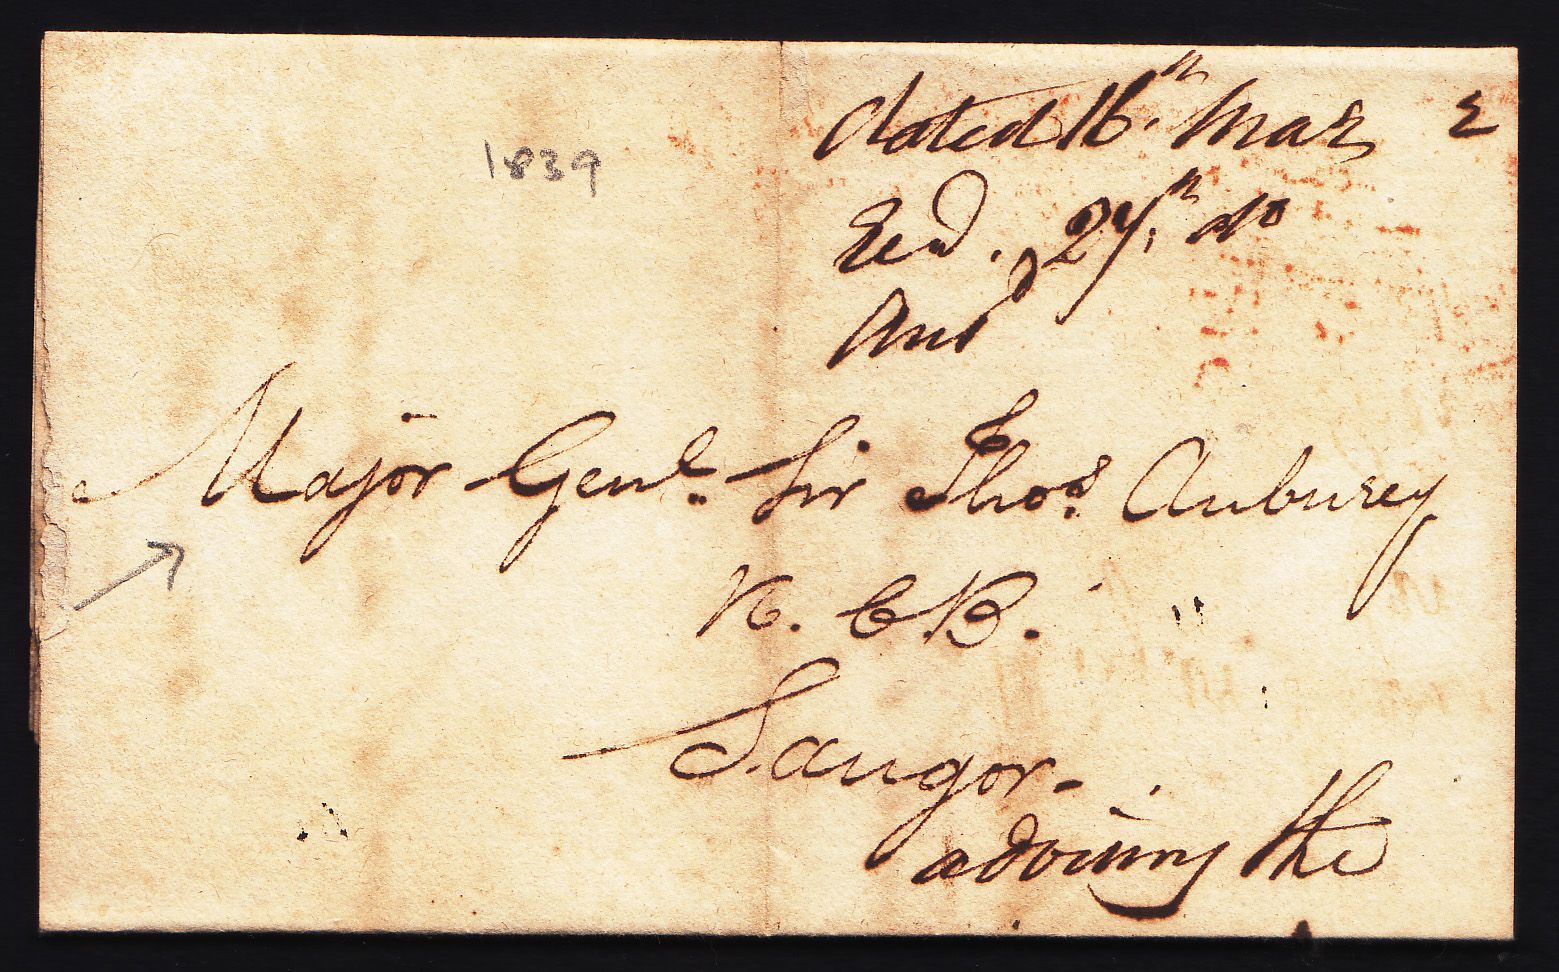 1839
dated 16th Mar
Recd. 27th do
Ansd
Major Genl. Sir Thos. Auburey
K. C. B.
Saugor.
the